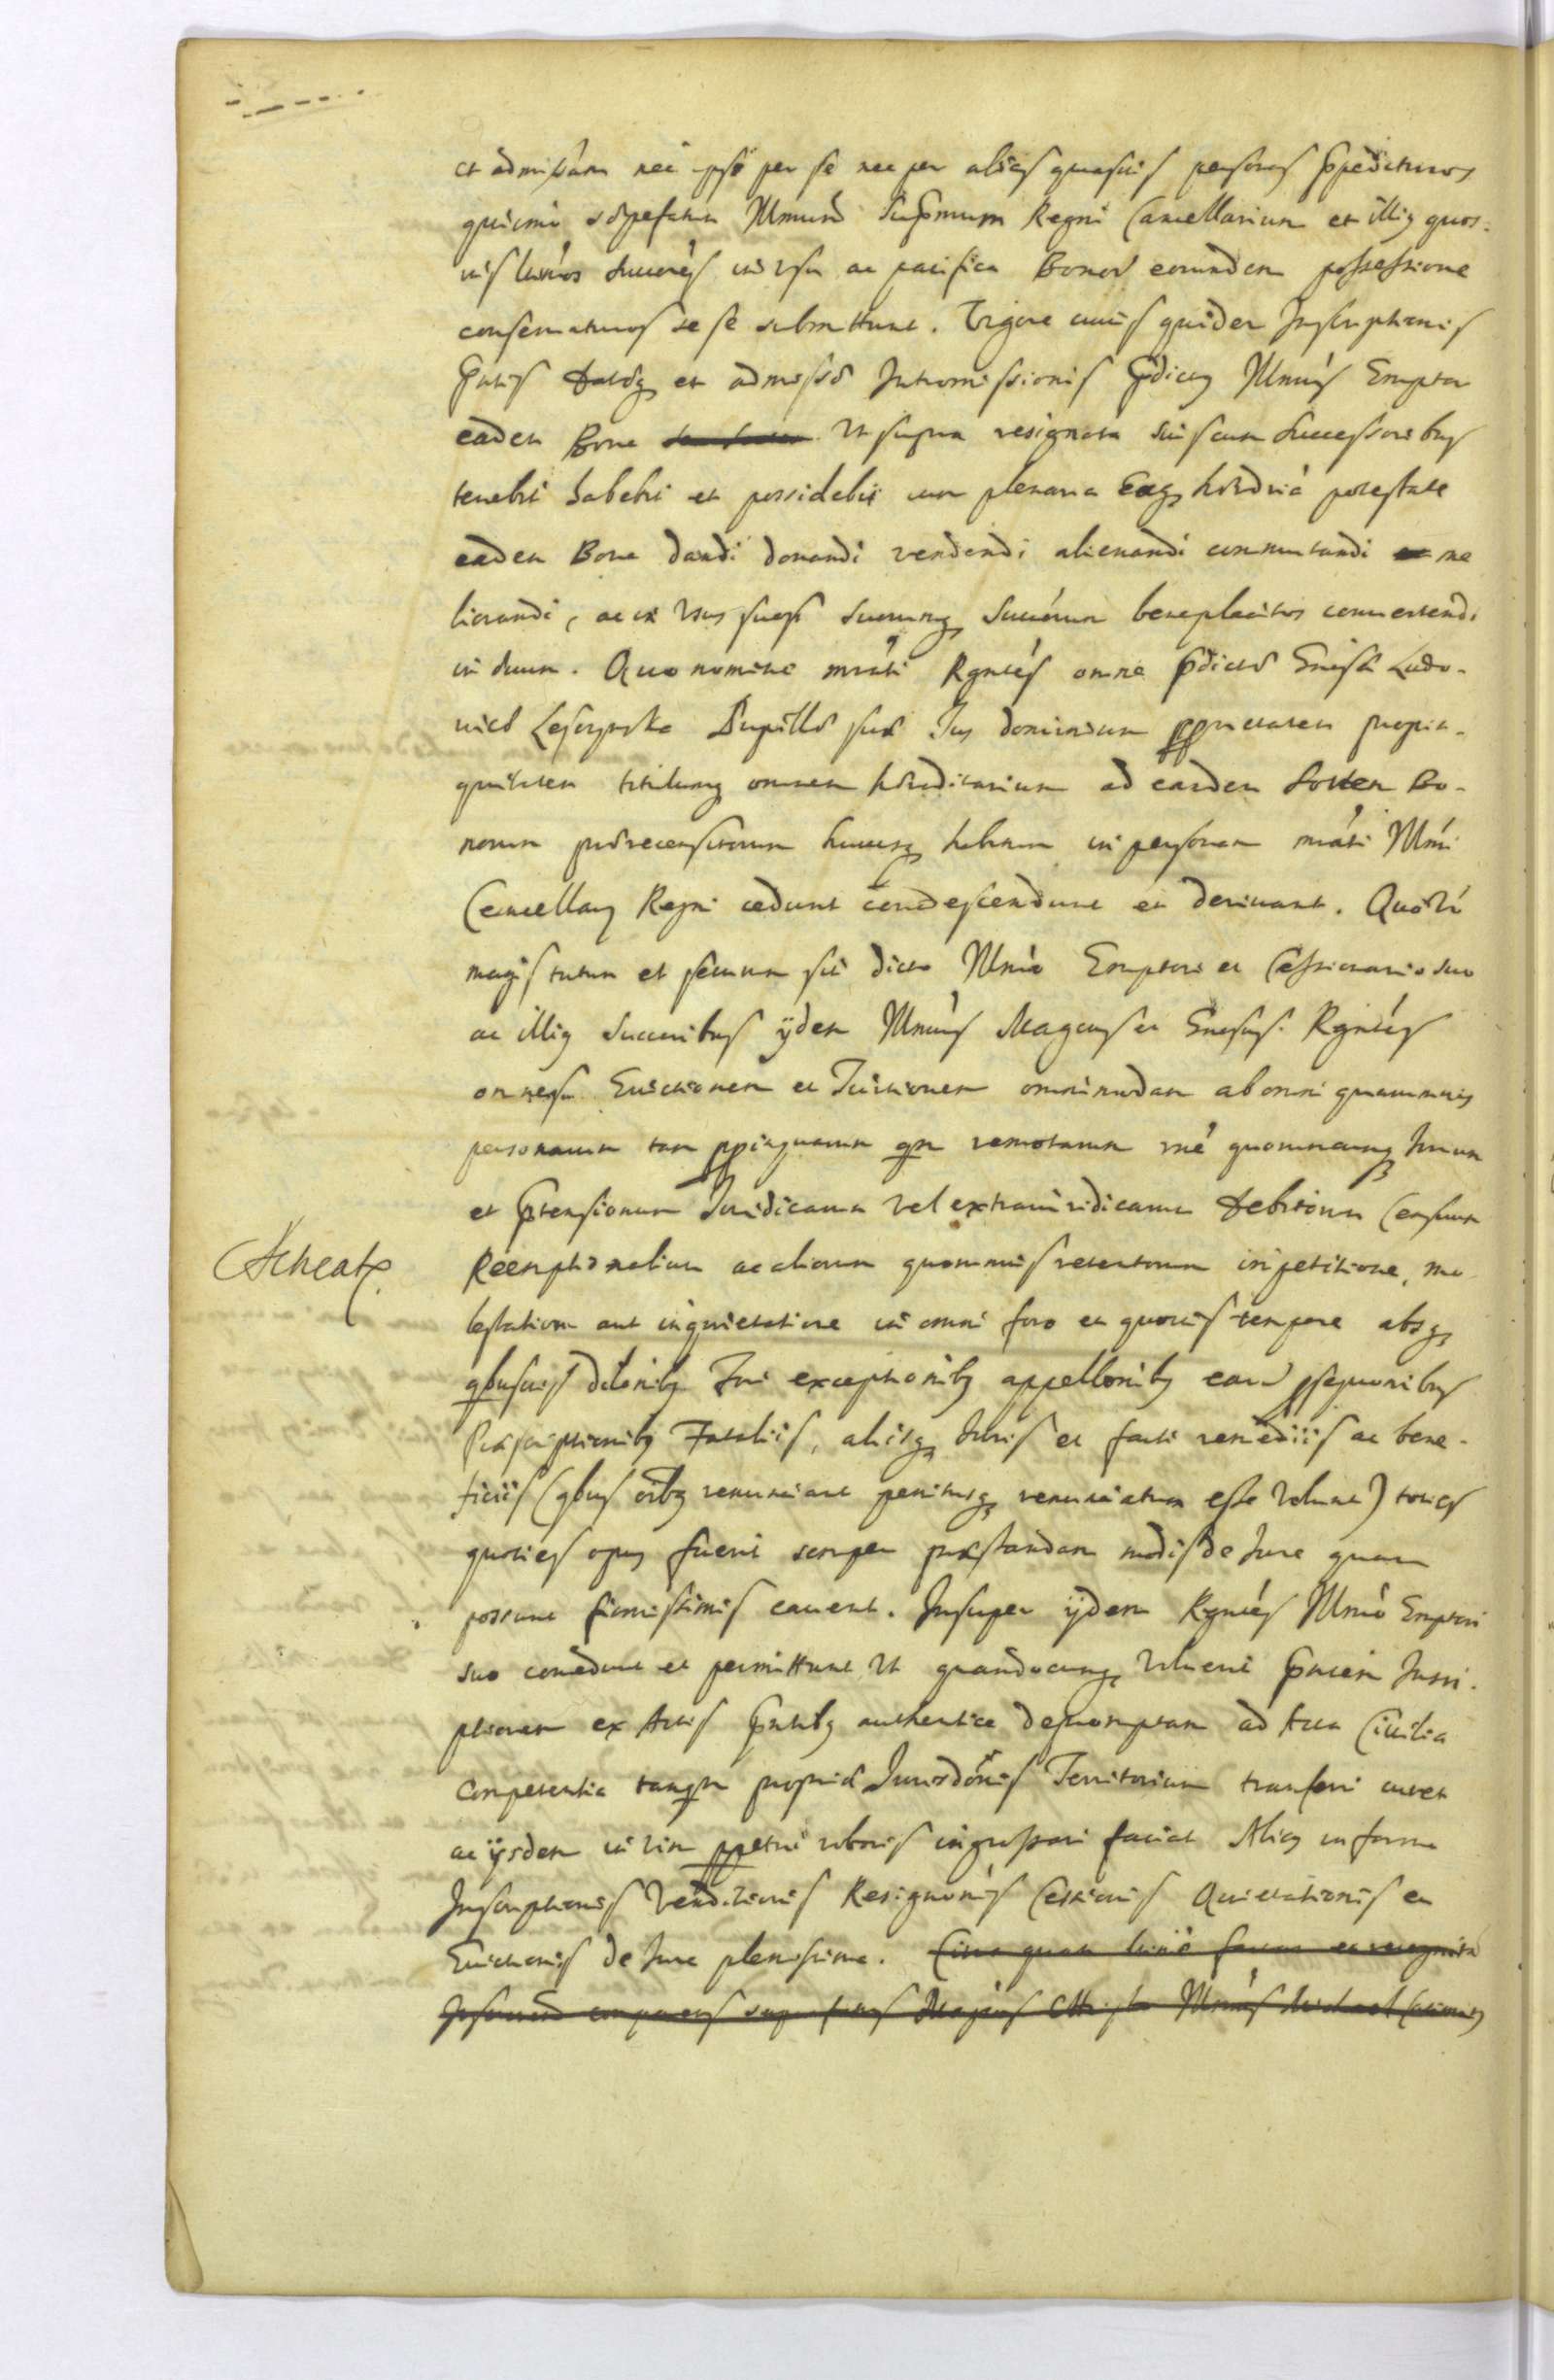 et admissam nec ipsi per se nec per alias quasvis personas ppedituros
quinimo Illmum Supmum Regni Cancellarium et illig quos-
vis lnros Succres in usu ac pacifica Bonor eorundem possessione
conservaturos se se submittunt. Vigore cuius quidem Inscriptionis
Pntis datoq et admisso Intromissionis pdictus Illmus Emptor
eadem Bona Ut supra resignata suis cum Successoribus
tenebit habebit et possidebit cum plenaria eaq hrdria potestate
eadem Bona dandi donandi vendendi alienandi commutandi me
liorandi, ac in Usus suos suorumq Succorum beneplacitos convertendi
in duum. Quo nomine mrati Rgntes omne pdicto Gnso Ludo-
vico Leszczynski Pupillo suo Jus dominium pprietatem propin-
quitatem titulumq omnem hrditarium ad eandem Sortem Bo-
norum prorecensitorum hucusq habitum in personam mrati Illmi
Cancellarij Regni cedunt condescendunt et derivant. Quo Ut
magis tutum et securum sit dicto Illmo Emptori et Cessionario suo
ac illig Succoribus ijdem Illmus Magcus et Gnosus Rgntes
omnes Evictionem et Tuitionem omnimodam ab omni quarumvis
personarum tam ppinquarum qm remotarum nne quorumcunq Jurium
et Ptensionum Juridicarum vel extrajuridicarum Debitorum Censuum
Acticat
Reemptionalium ac aliorum quorumvis retentorum impetitione, mo
lestatione aut inquietatione in omni foro et quovis tempore absq
qbusvis dilonibq Juri exceptionibq appellonibq earu psequonibus
Praescriptionibq Fataliis, aliisq Juris et facti remediis ac bene-
ficiis (qbus oibq renunciant penitusq renunciatum esse volunt) toties
quoties opus fuerit semper praestandam modis de Jure quam
possunt firmissimis cavent. Insuper ijdem Rgntes Illmo Emptori
suo concedunt et permittunt Ut quandocunq voluerit Pntem Inscri-
ptionem ex Actis Pntibq authentice depromptam ad Acta Civilia
Competentia tanqm propria Jurisdonis Territorium transferri curet
ac ijsdem in vim ppetui roboris ingrossari faciat Alias in forma
Inscriptionis Venditionis Resignonis Cessionis Quietationis et
Evictionis de Jure plenissima.